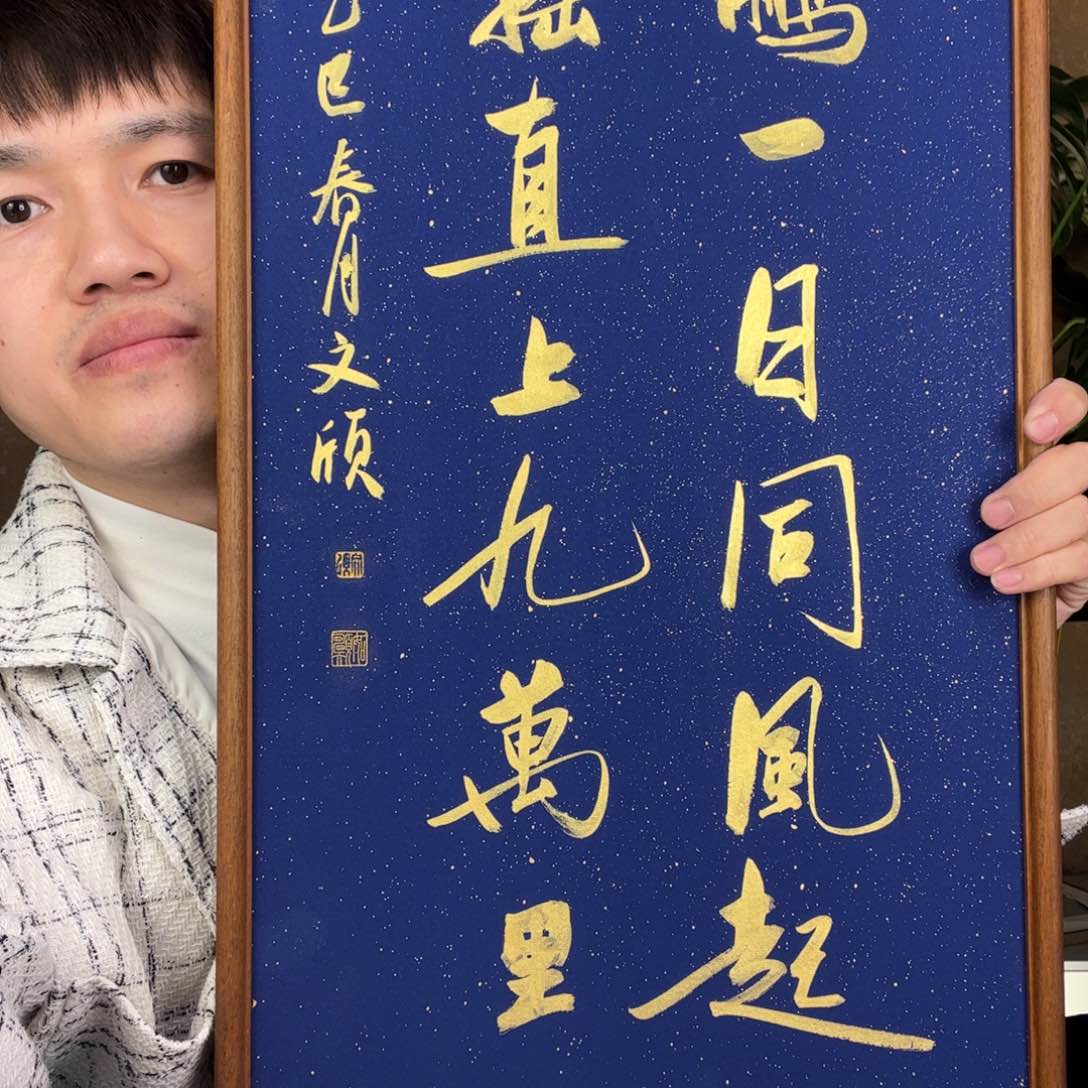 鵬一日同風起
搖直上九萬里
乙巳春月文頎